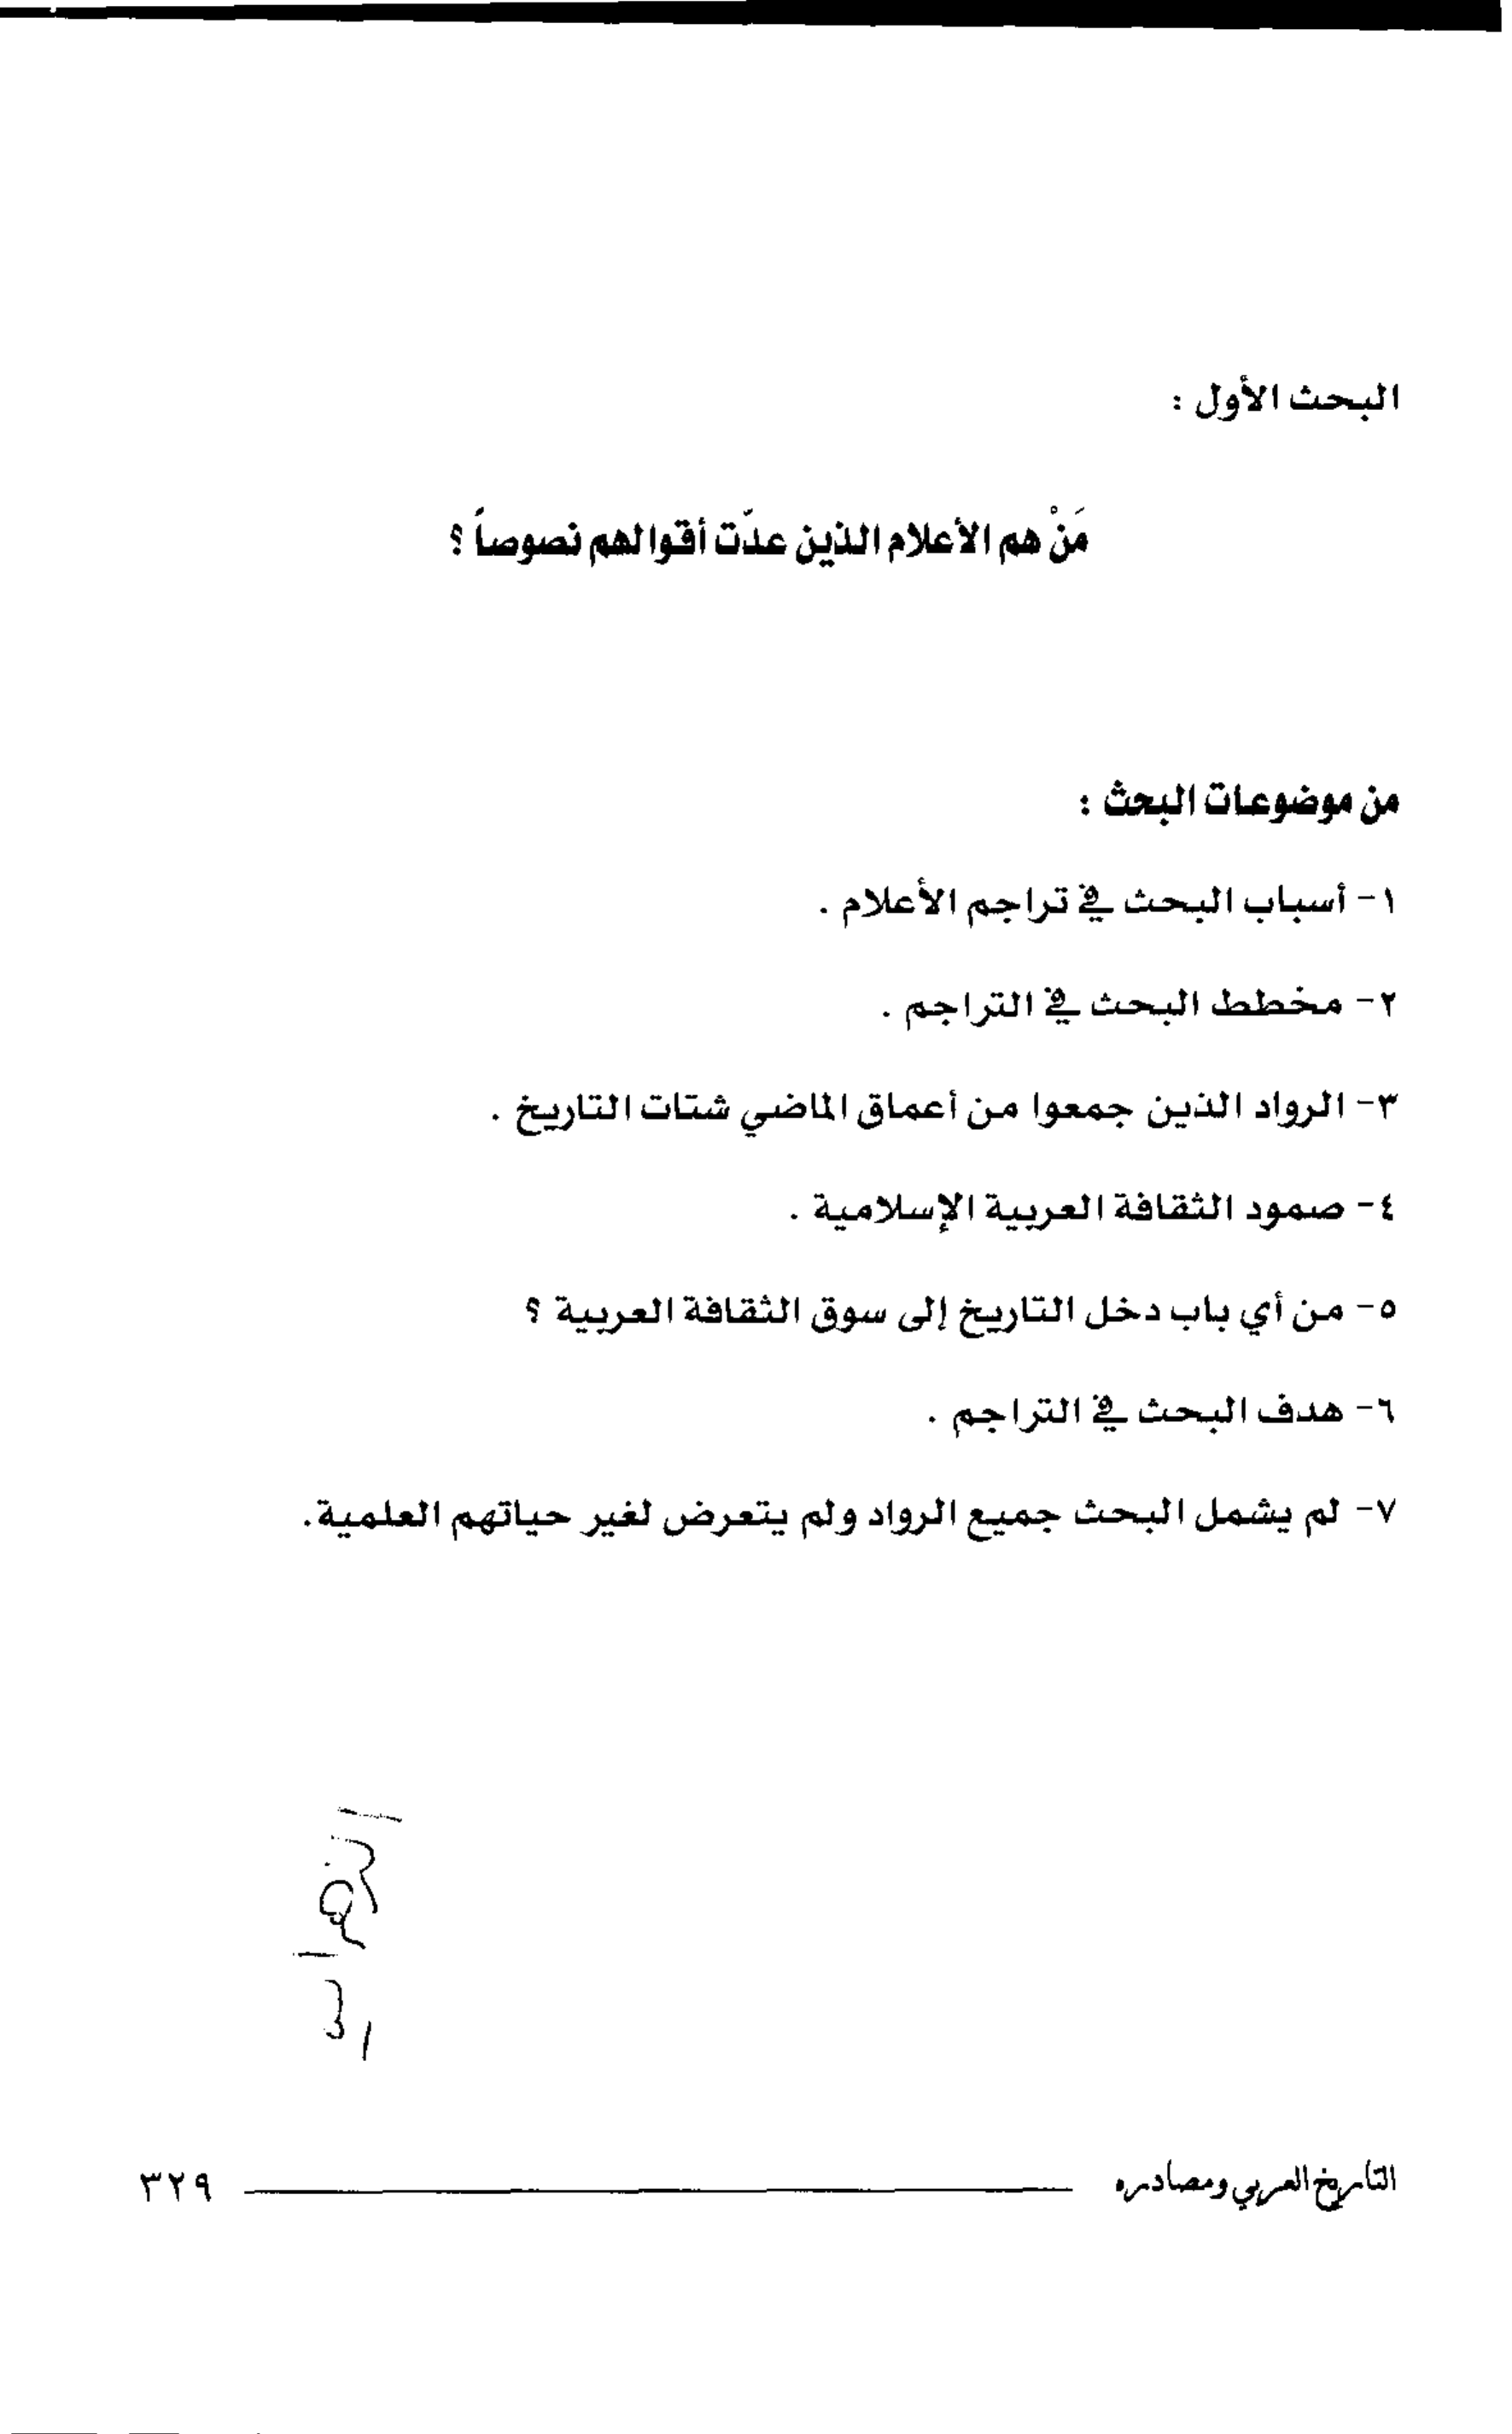 البحث الأول :
مَنْ هم الأعلام الذين عدّت أقوالهم نصوصاً ؟
من موضوعات البحث :
١- أسباب البحث في تراجم الأعلام .
٢- مخطط البحث في التراجم .
٣- الرواد الذين جمعوا من أعماق الماضي شتات التاريخ .
٤- صمود الثقافة العربية الإسلامية .
٥- من أي باب دخل التاريخ إلى سوق الثقافة العربية ؟
٦- هدف البحث في التراجم .
٧- لم يشمل البحث جميع الرواد ولم يتعرض لغير حياتهم العلمية.
التاريخ العربي ومصادره ٣٢٩